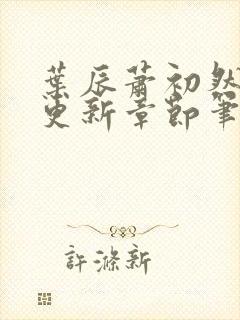 葉辰蕭初然
更新章節筆
許滌新